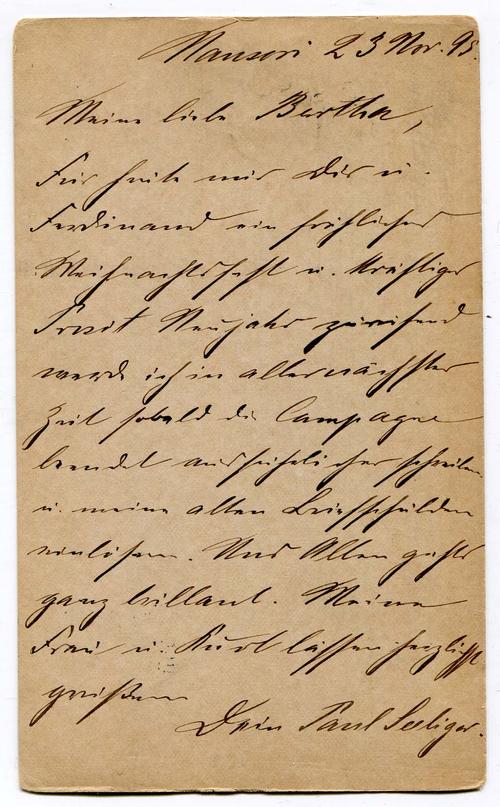 Mansori 23 Nov. 95.
Meine liebe Bertha,
Für heute nur Dir u.
Ferdinand ein fröhliches
Weihnachtsfest u. kräftiges
Prosit Neujahr zurufend
werde ich in allernächster
Zeit sobald die Campagne
beendet ausführlicher schreiben
u. meine alten Briefschulden
einlösen. Uns Allen gehts
ganz brillant. Meine
Frau u. Kurt lassen herzlichst
grüßen
Dein Paul Seeliger.